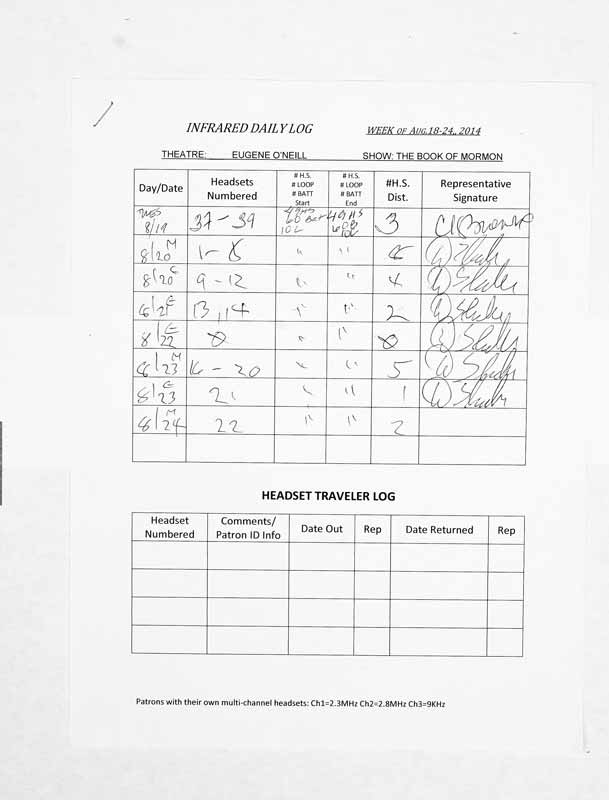 INFRARED DAILY LOG WEEK OF AUG.18-24,, 2014
THEATRE: EUGENE O'NEILL SHOW: THE BOOK OF MORMON
Day/Date Headsets Numbered # H.S. # LOOP # BATT Start # H.S. # LOOP # BATT End #H.S. Dist. Representative Signature
TUES 8/19 37 - 39 3
8/20 M 1- " " "
8/20 E 9 - 12 " " 4
8/21 E 13,14 " " 2
8/22 E 0 " " 0
8/23 M 16 - 20 " " 5
8/23 E 21 " " 1
8/24 M 22 " " 2
HEADSET TRAVELER LOG
Headset Numbered Comments/ Patron ID Info Date Out Rep Date Returned Rep
Patrons with their own multi-channel headsets: Ch1=2.3MHz Ch2=2.8MHz Ch3=9KHz